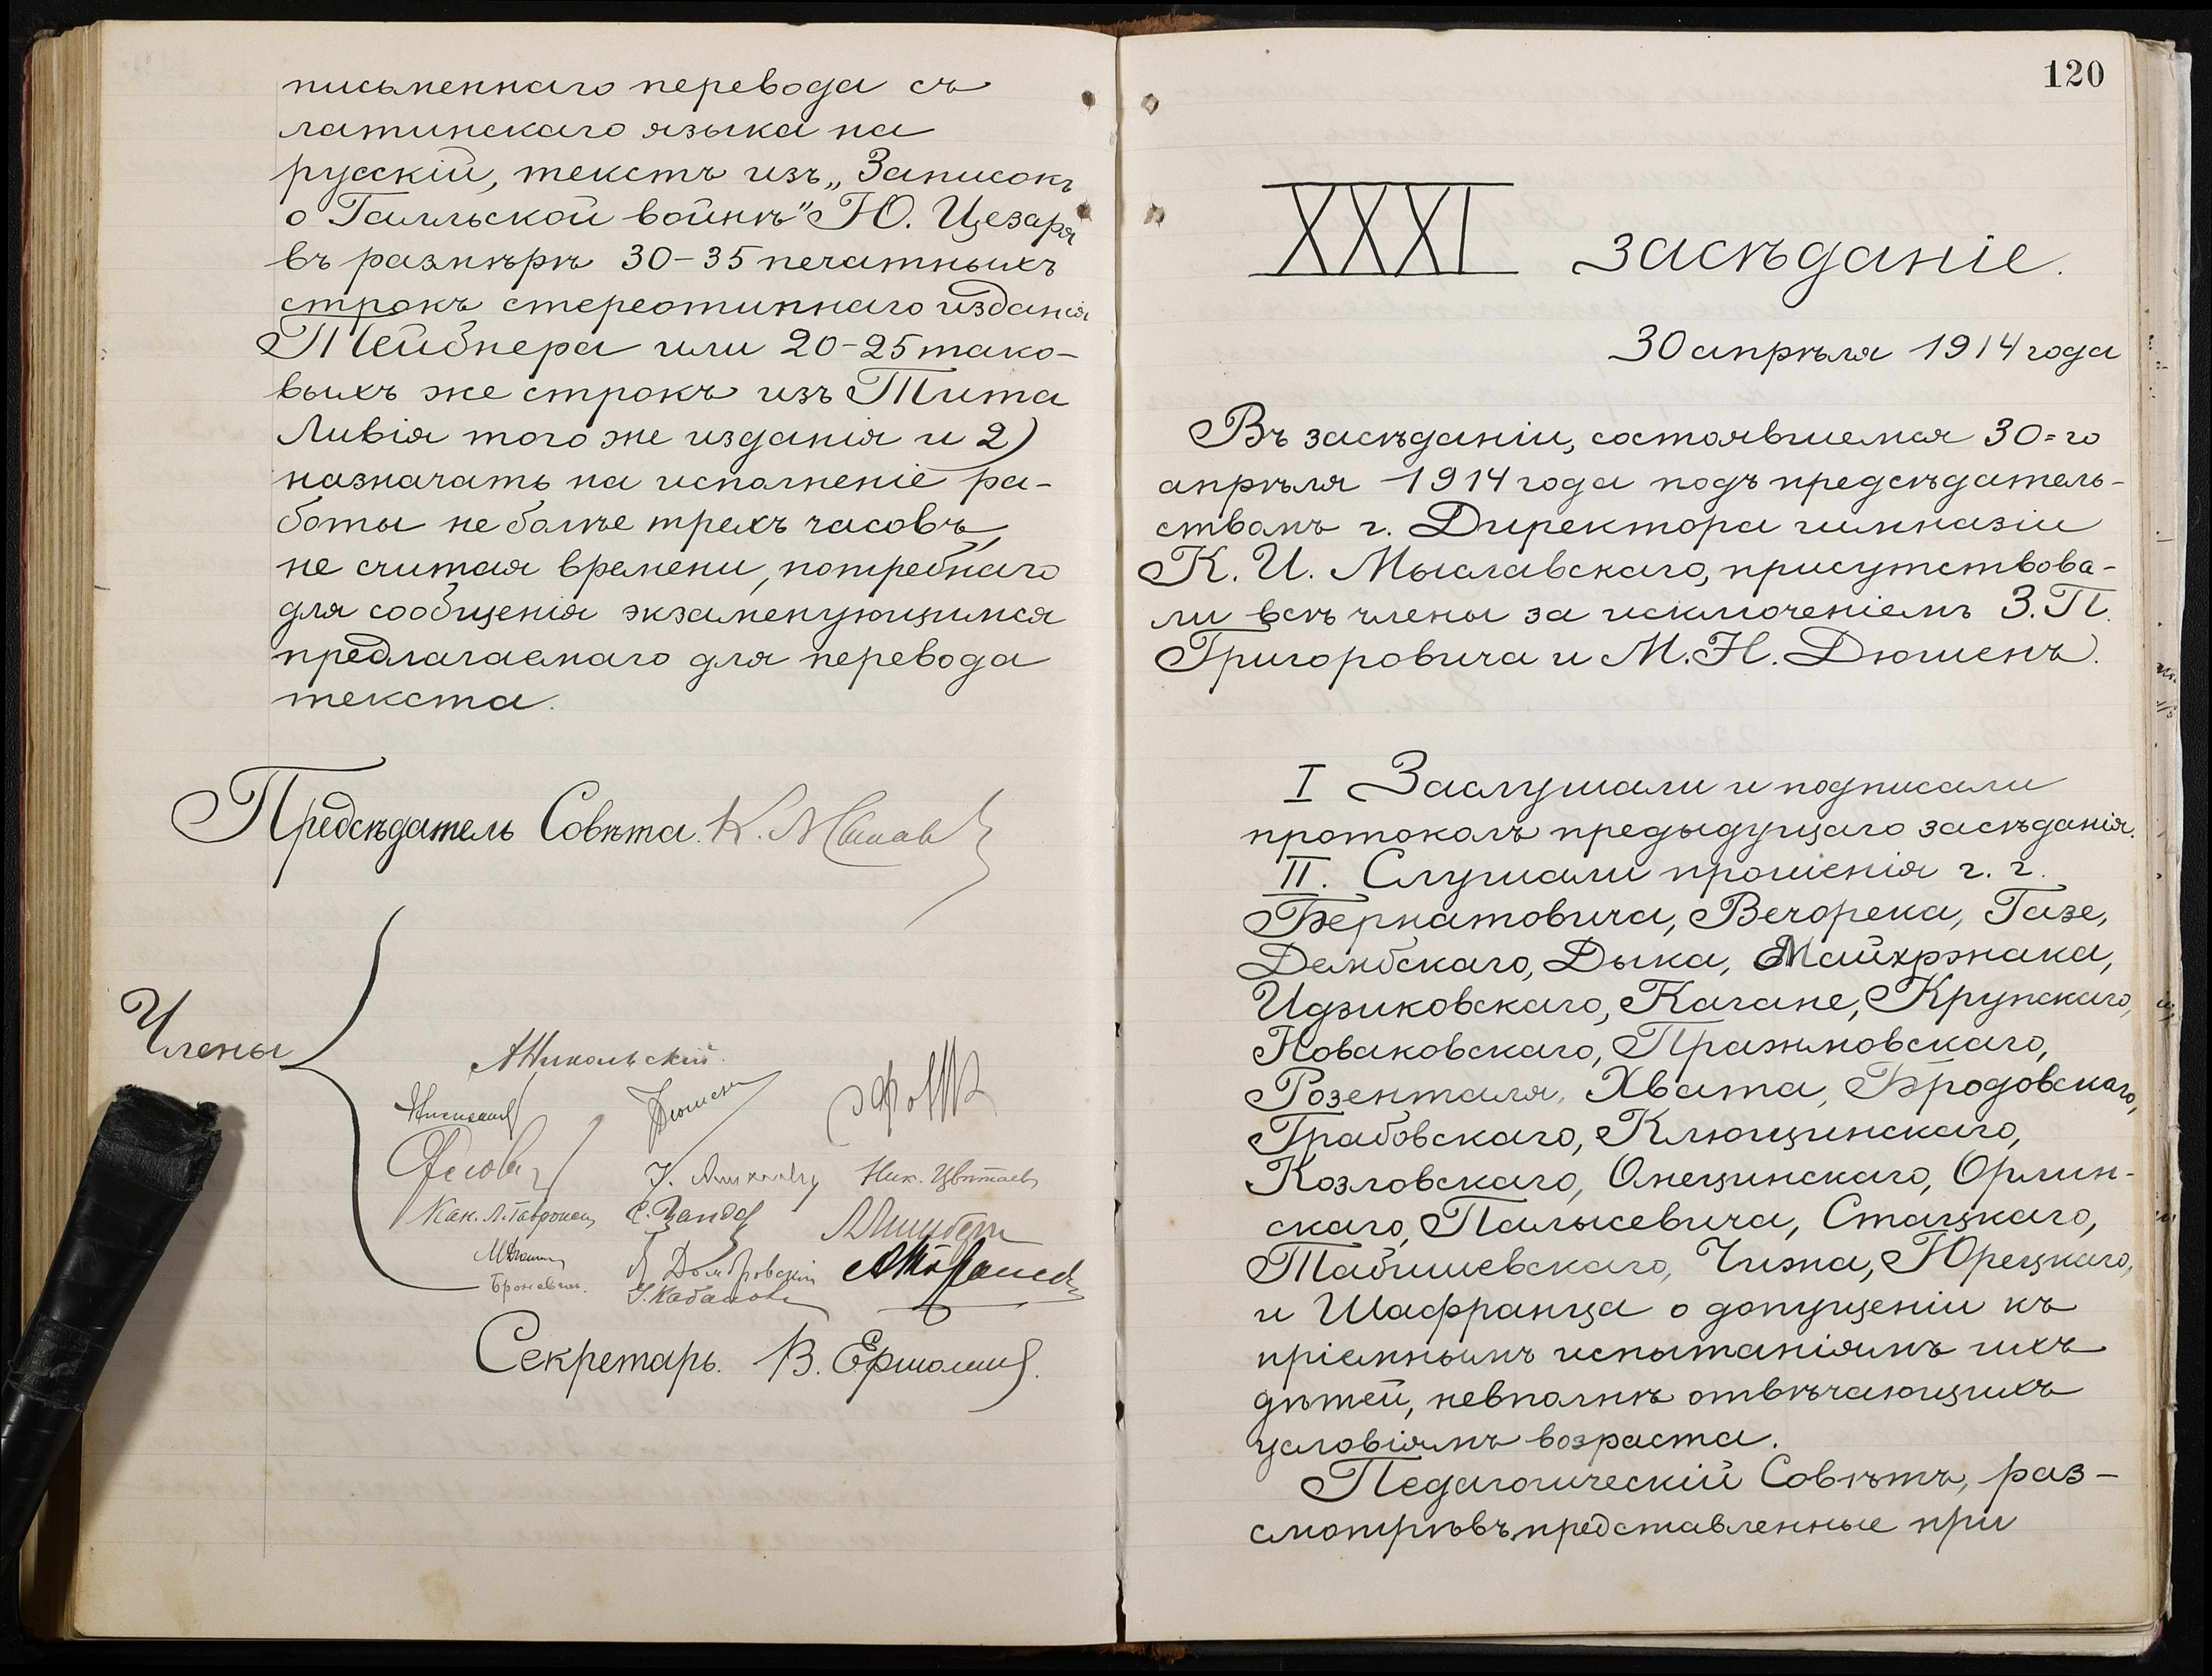 письменнаго перевода съ
латинскаго языка на
русскій, текстъ изъ „Записокъ
о Галльской войнѣ" Ю. Цезаря
въ размѣрѣ 30-35 печатныхъ
строкъ стереотипнаго изданія
Тейбнера или 20-25 тако-
выхъ же строкъ изъ Тита
Ливія того же изданія и 2)
назначать на исполненіе ра-
боты не болѣе трехъ часовъ,
не считая времени, потребнаго
для сообщенія экзаменующимся
предлагаемаго для перевода
текста.
Предсѣдатель Совѣта. К.
Члены
А Никольскій.
Дюшенъ
Ник. Цвѣтаевъ
Домбровскій
Секретарь. В. Ермолинъ.
120
XXXI засѣданіе.
30 апрѣля 1914 года
Въ засѣданіи, состоявшемся 30=го
апрѣля 1914 года подъ предсѣдатель-
ствомъ г. Директора гимназіи
К. И. Мыславскаго, присутствова-
ли всѣ члены за исключеніемъ З. П.
Григоровича и М. Н. Дюшенъ.
I Заслушали и подписали
протоколъ предыдущаго засѣданія.
II. Слушали прошенія г. г.
Бернатовича, Вечорека, Газе,
Дембскаго, Дыка, Майхржака,
Идзиковскаго, Кагане, Крупскаго,
Новаковскаго, Пражмовскаго,
Розенталя, Хвата, Бродовскаго,
Грабовскаго, Клющинскаго,
Козловскаго, Онещинскаго, Орлин-
скаго, Палысевича, Стацкаго,
Табишевскаго, Чижа, Юрецкаго,
и Шафранца о допущеніи къ
пріемнымъ испытаніямъ ихъ
дѣтей, невполнѣ отвѣчающихъ
условіямъ возраста.
Педагогическій Совѣтъ, раз-
смотрѣвъ представленные при